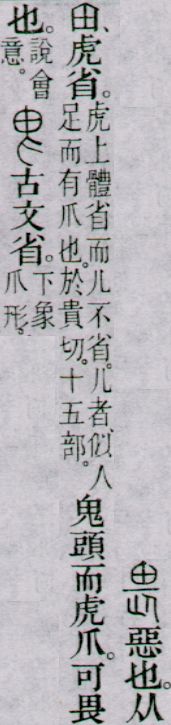 畏惡也。从
甶、虎省。虎上體省而儿不省。儿者、似人足而有爪也。於貴切。十五部。鬼頭而虎爪。可畏
也。說會意。古文省。下象爪形。